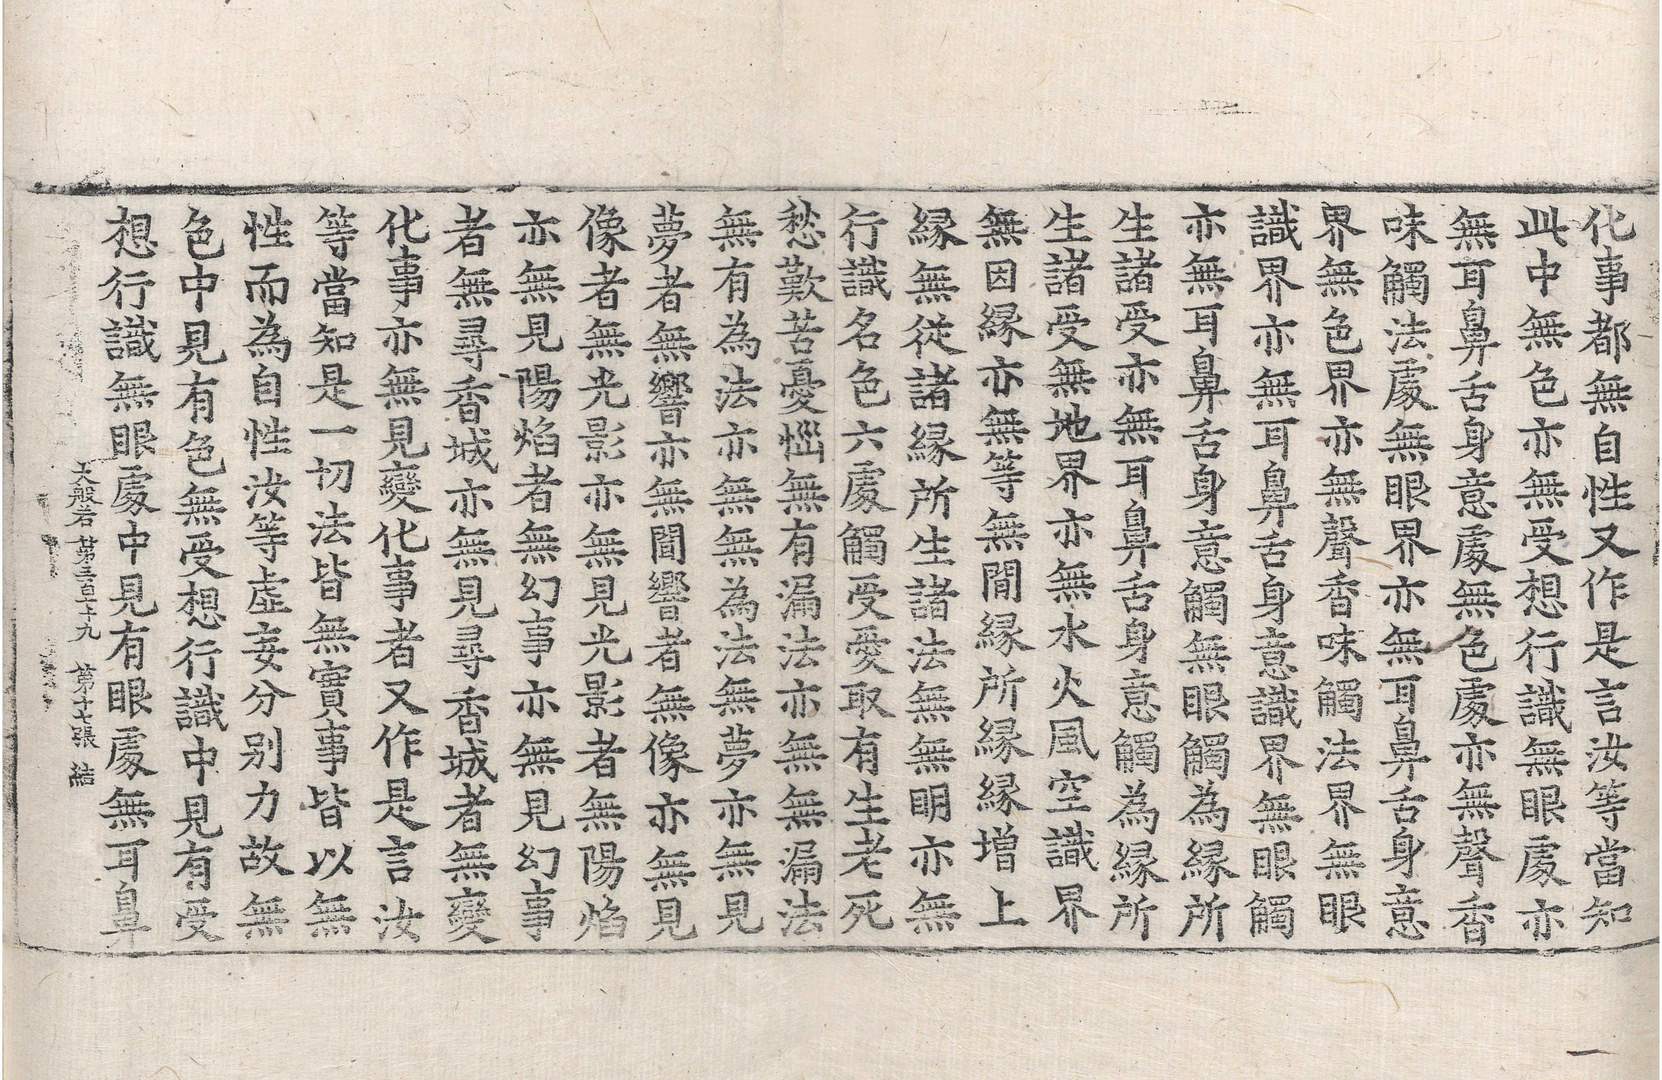 化事都無自性又作是言汝等當知
此中無色亦無受想行識無眼處亦
無耳鼻舌身意處無色處亦無聲香
味觸法處無眼界亦無耳鼻舌身意
界無色界亦無聲香味觸法界無眼
識界亦無耳鼻舌身意識界無眼觸
亦無耳鼻舌身意觸無眼觸為縁所
生諸受亦無耳鼻舌身意觸為縁所
生諸受無地界亦無水火風空識界
無因縁亦無等無間縁所縁縁增上
縁無從諸縁所生諸法無無明亦無
行識名色六處觸受愛取有生老死
愁歎苦憂惱無有漏法亦無無漏法
無有為法亦無無為法無夢亦無見
夢者無響亦無聞響者無像亦無見
像者無光影亦無見光影者無陽焰
亦無見陽焰者無幻事亦無見幻事
者無尋香城亦無見尋香城者無變
化事亦無見變化事者又作是言汝
等當知是一切法皆無實事皆以無
性而為自性汝等虛妄分別力故無
色中見有色無受想行識中見有受
想行識無眼處中見有眼處無耳鼻
大般若 第三百二十九 第十七張 結